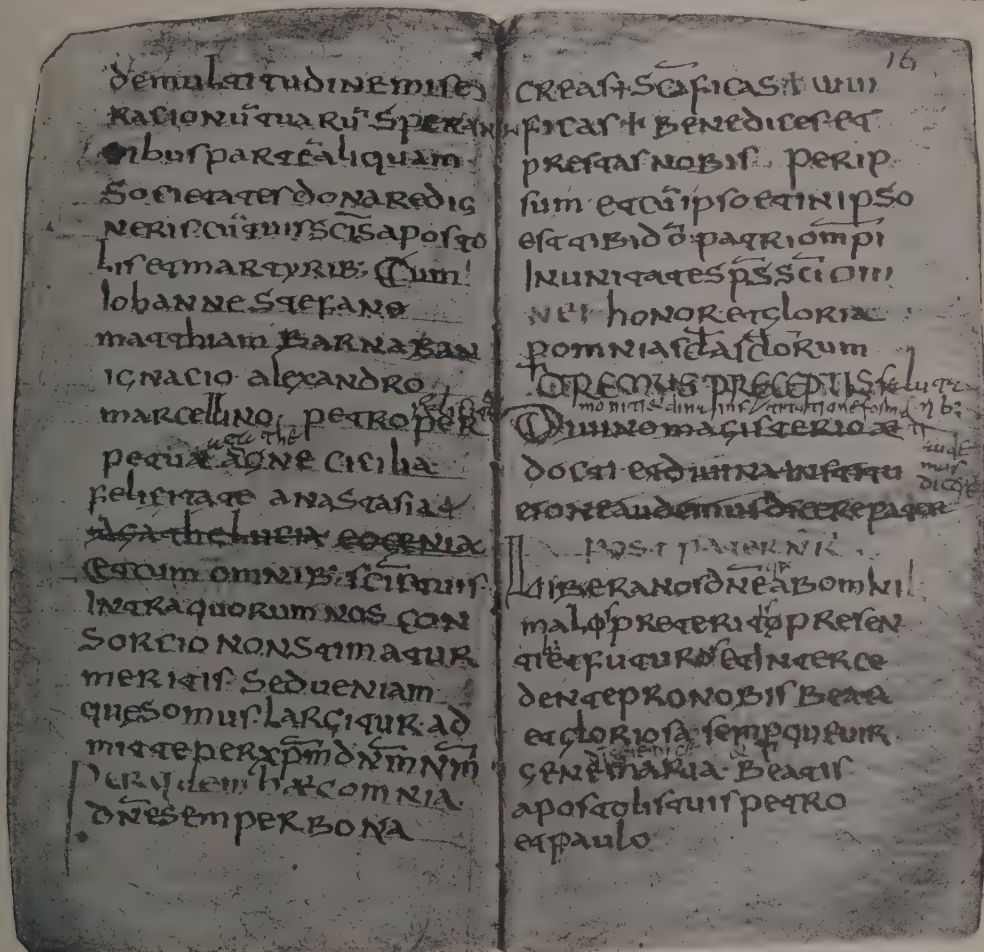 demultitudinemise
racionũ tuarũ Speran
tibus partẽ aliquam
Societates donaredig
neris cũ tuis S̄c̄īs aposto
lis et martyrib; Cum
Iohanne Stefano
matthiam Barnaban
ignacio alexandro
marcellino petro per
petua agne Cicilia
felicitate anastasia
agathe lucia eogenia
et cum omnib; s̄c̄īs tuis
Intra quorum nos con
Sorcio non Stimatur
meritis Sed ueniam
quesomus Largitur ad
mitte per x̄p̄m d̄n̄m n̄m̄
Per quem hæc omnia
d̄n̄e semper bona
16
creas + S̄c̄īficas + uiui
ficas + Benedices et
prestas nobis perip
sum et cũ ipso et in ipso
est tibi d̄ō patri om̄pi
In unitate S̄p̄s S̄c̄ī om
honor et gloria
p omnia s̄c̄l̄a s̄c̄l̄orum
OREMUS PRECEPTIS salu
Diuino magisterio
docti et diuina institu
cione audemus dicere pater
POST PATER NR
Libera nos d̄n̄e ab omni
malo preterito presen
ti et futuro et Interce
dente pro nobis Beata
et gloriosa semp que uir
gene maria Beatis
apostolis tuis petro
et paulo